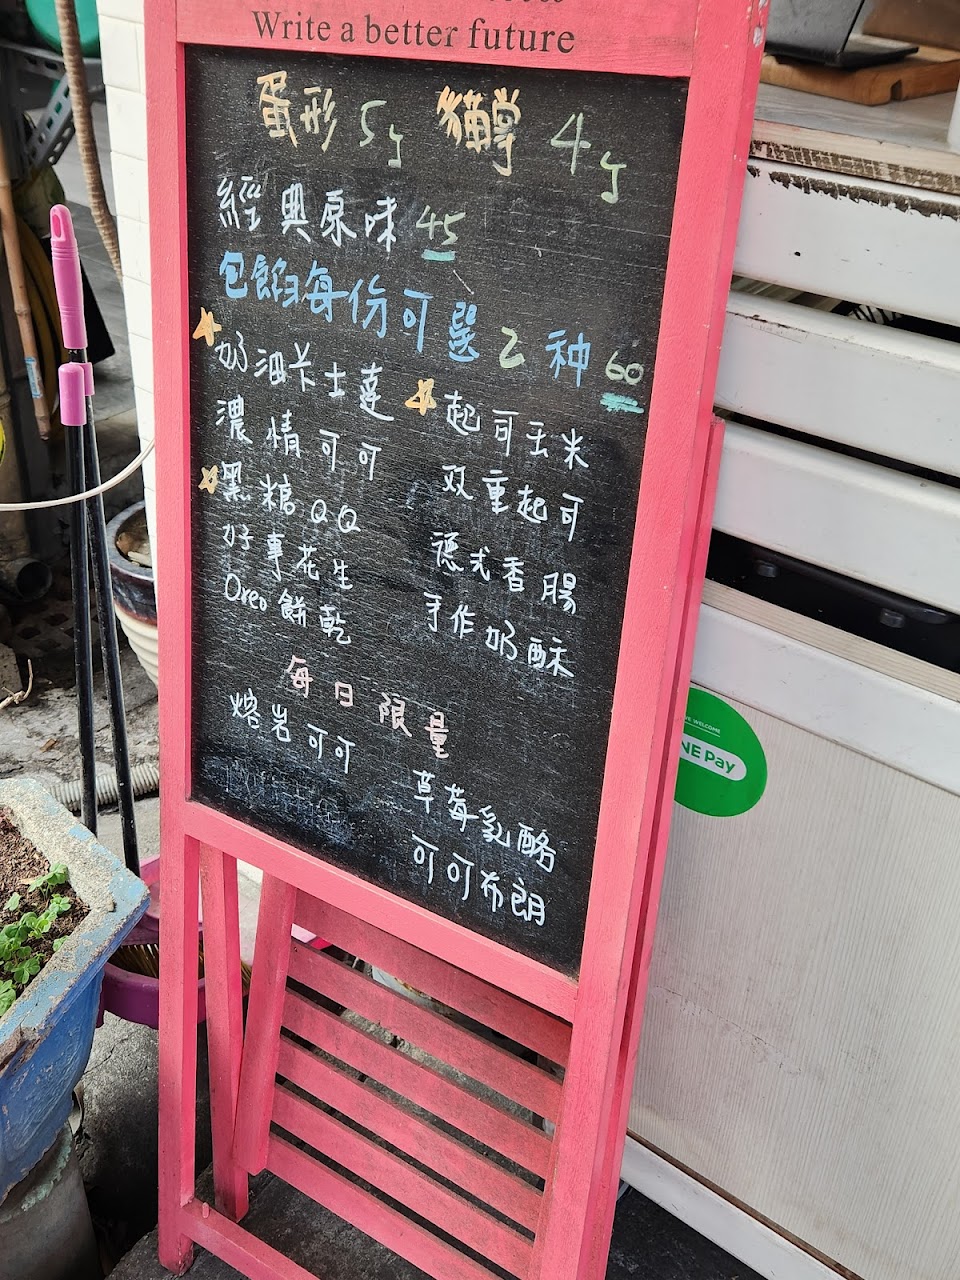 Write a better future
蛋形 5y 貓掌 4y
經典原味 45
包餡每份可選 2 种 60
奶油卡士達
起司玉米
濃情可可
双重起司
黑糖QQ
德式香腸
好事花生
手作奶酥
Oreo餅乾
每日限量
熔岩可可
草莓乳酪
可可布朗
WE WELCOME
NE Pay